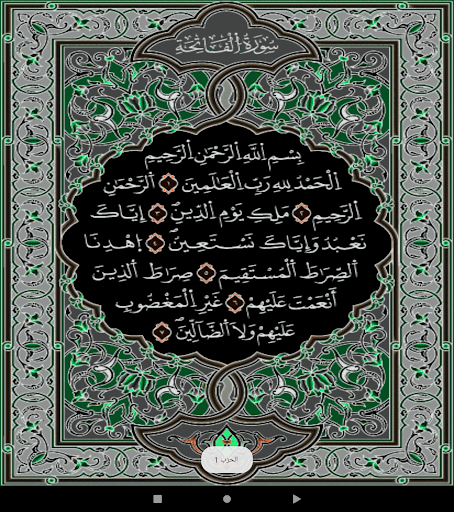 سُورَةُ الْفَاتِحَة
بِسْمِ اِللَّهِ اِلرَّحْمَٰنِ اِلرَّحِيمِ
اِلْحَمْدُ لِلهِ رَبِّ اِلْعَٰلَمِينَ ١ اَلرَّحْمَٰنِ
اِلرَّحِيمِ ٢ مَلِكِ يَوْمِ اِلدِّينِ ٣ إِيَّاكَ
نَعْبُدُ وَإِيَّاكَ نَسْتَعِينُ ٤ اِهْدِنَا
اَلصِّرَٰطَ اَلْمُسْتَقِيمَ ٥ صِرَٰطَ اَلذِينَ
أَنْعَمْتَ عَلَيْهِمْ ٦ غَيْرِ اِلْمَغْضُوبِ
عَلَيْهِمْ وَلَا اَلضَّآلِّينَ ٧
الحزب 1